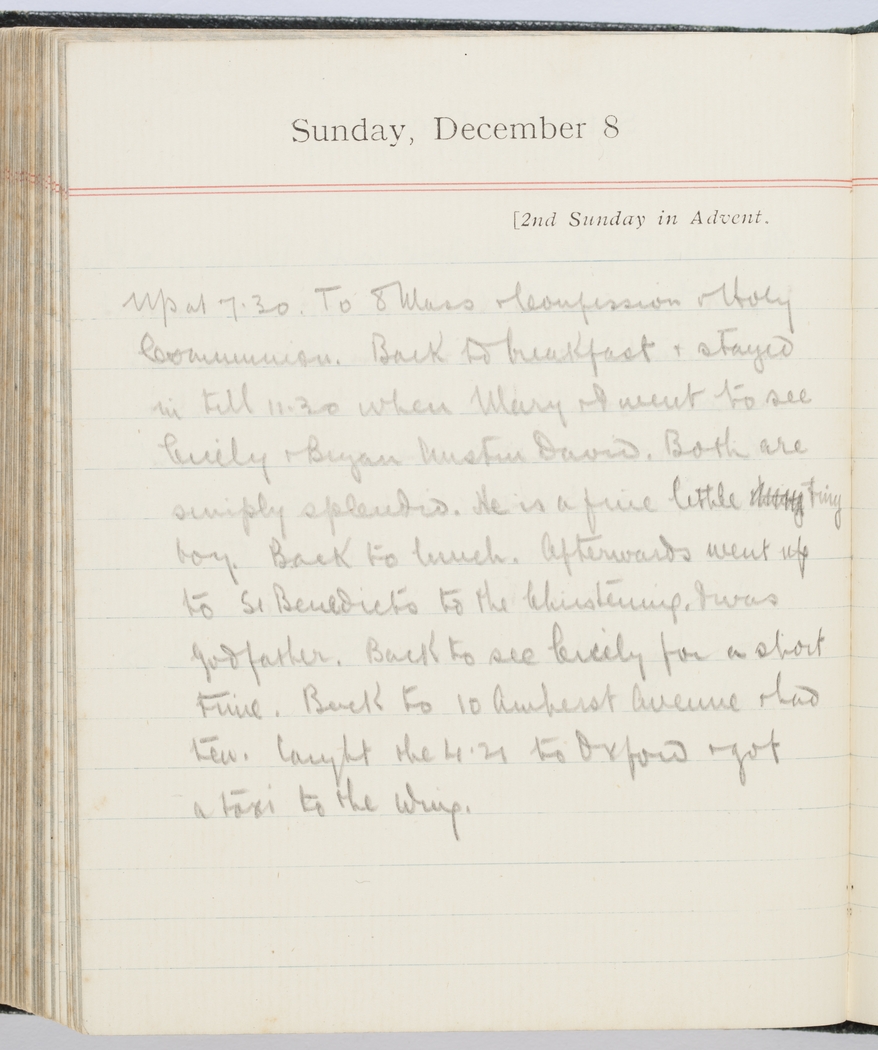 Sunday, December 8
[2nd Sunday in Advent.
Up at 7.30. To 8 Mass + Confession + Holy
Communion. Back to breakfast + stayed
in till 11.30 when Mary + I went to see
Cicily + Bryan Austin David. Both are
simply splendid. He is a fine little tiny
boy. Back to lunch. Afterwards went up
to St Benedicts to the Christening. I was
Godfather. Back to see Cicily for a short
time. Back to 10 Amherst Avenue + had
tea. Caught the 4.21 to Oxford + got
a taxi to the Wing.